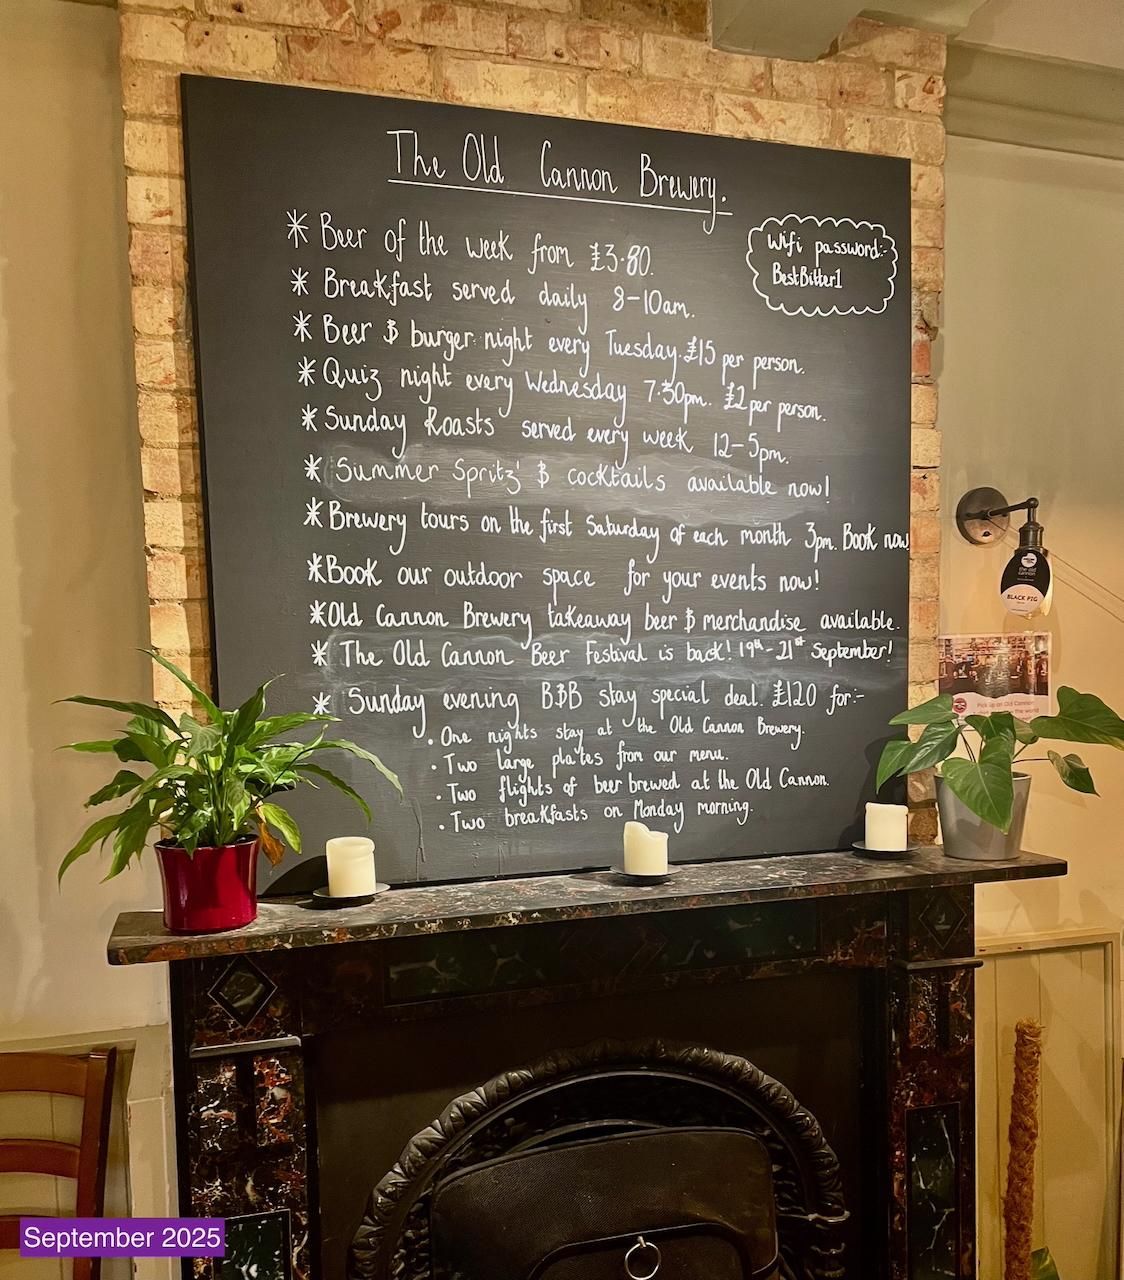 The Old Cannon Brewery.
Wifi password:-
BestBitter1
* Beer of the week from £3.80.
* Breakfast served daily 8-10am.
* Beer & burger night every Tuesday. £15 per person.
* Quiz night every Wednesday 7.30pm. £2 per person.
* Sunday Roasts served every week 12-5pm.
* 'Summer Spritz' & cocktails available now!
* Brewery tours on the first Saturday of each month 3pm. Book now
* Book our outdoor space for your events now!
* Old Cannon Brewery takeaway beer & merchandise available.
* The Old Cannon Beer Festival is back! 19th-21st September!
* Sunday evening B&B stay special deal. £120 for:-
• One nights stay at the Old Cannon Brewery.
• Two large plates from our menu.
• Two flights of beer brewed at the Old Cannon.
• Two breakfasts on Monday morning.
the old
cannon
BLACK PIG
Pick up an Old Cannon
the world
September 2025